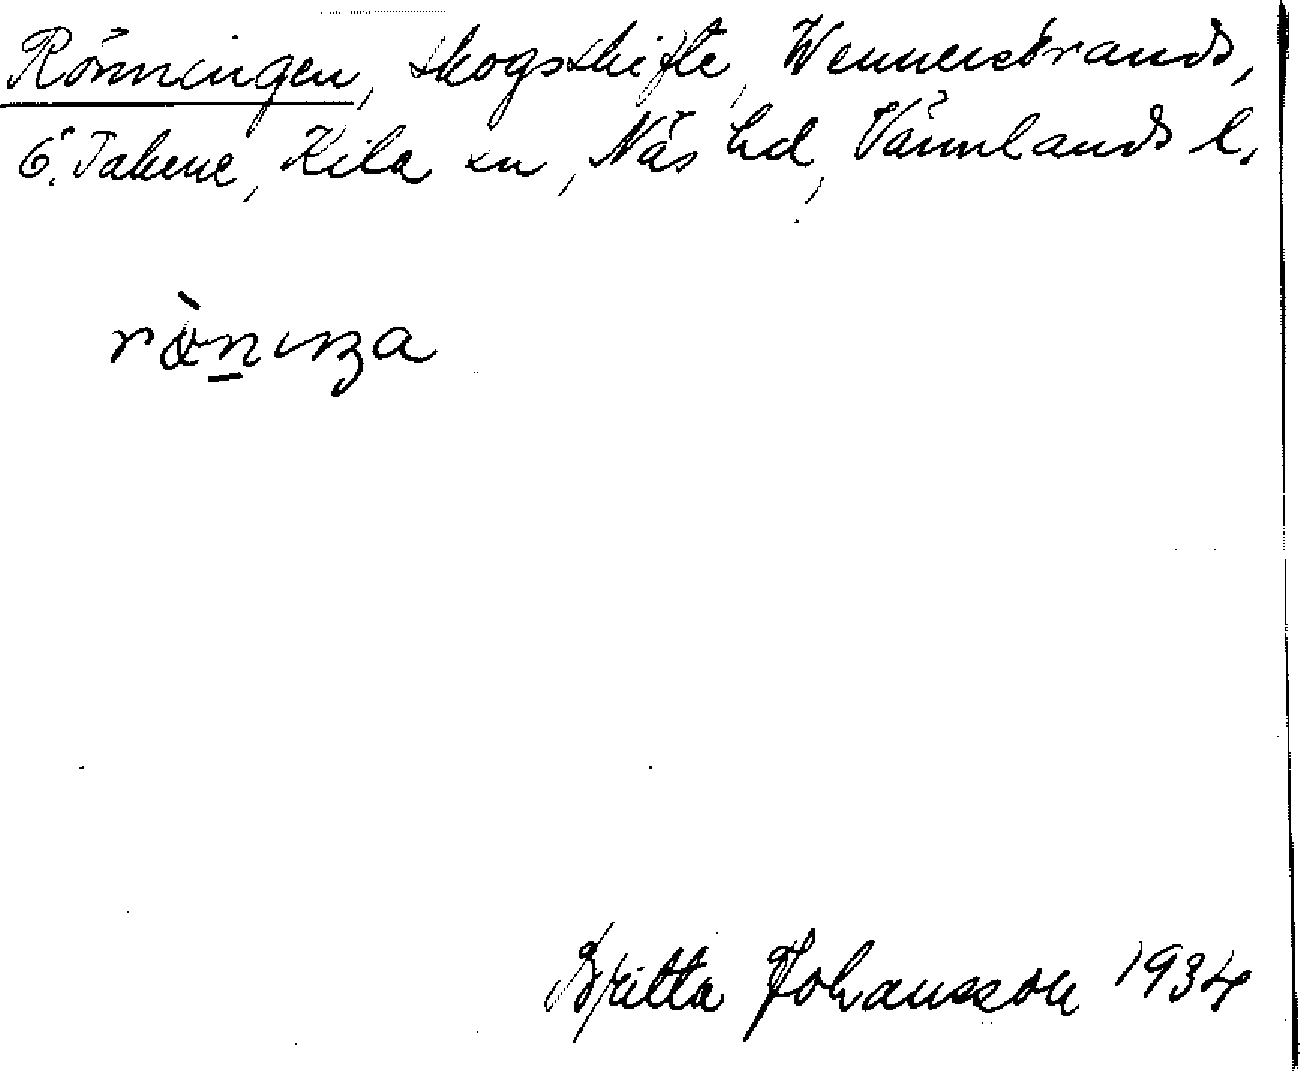 Rönningen, skogsskifte, Wennerstrands,
Ö. Takene, Kila sn, Näs hd, Värmlands l.
rὼnıŋa
Britta Johansson 1934